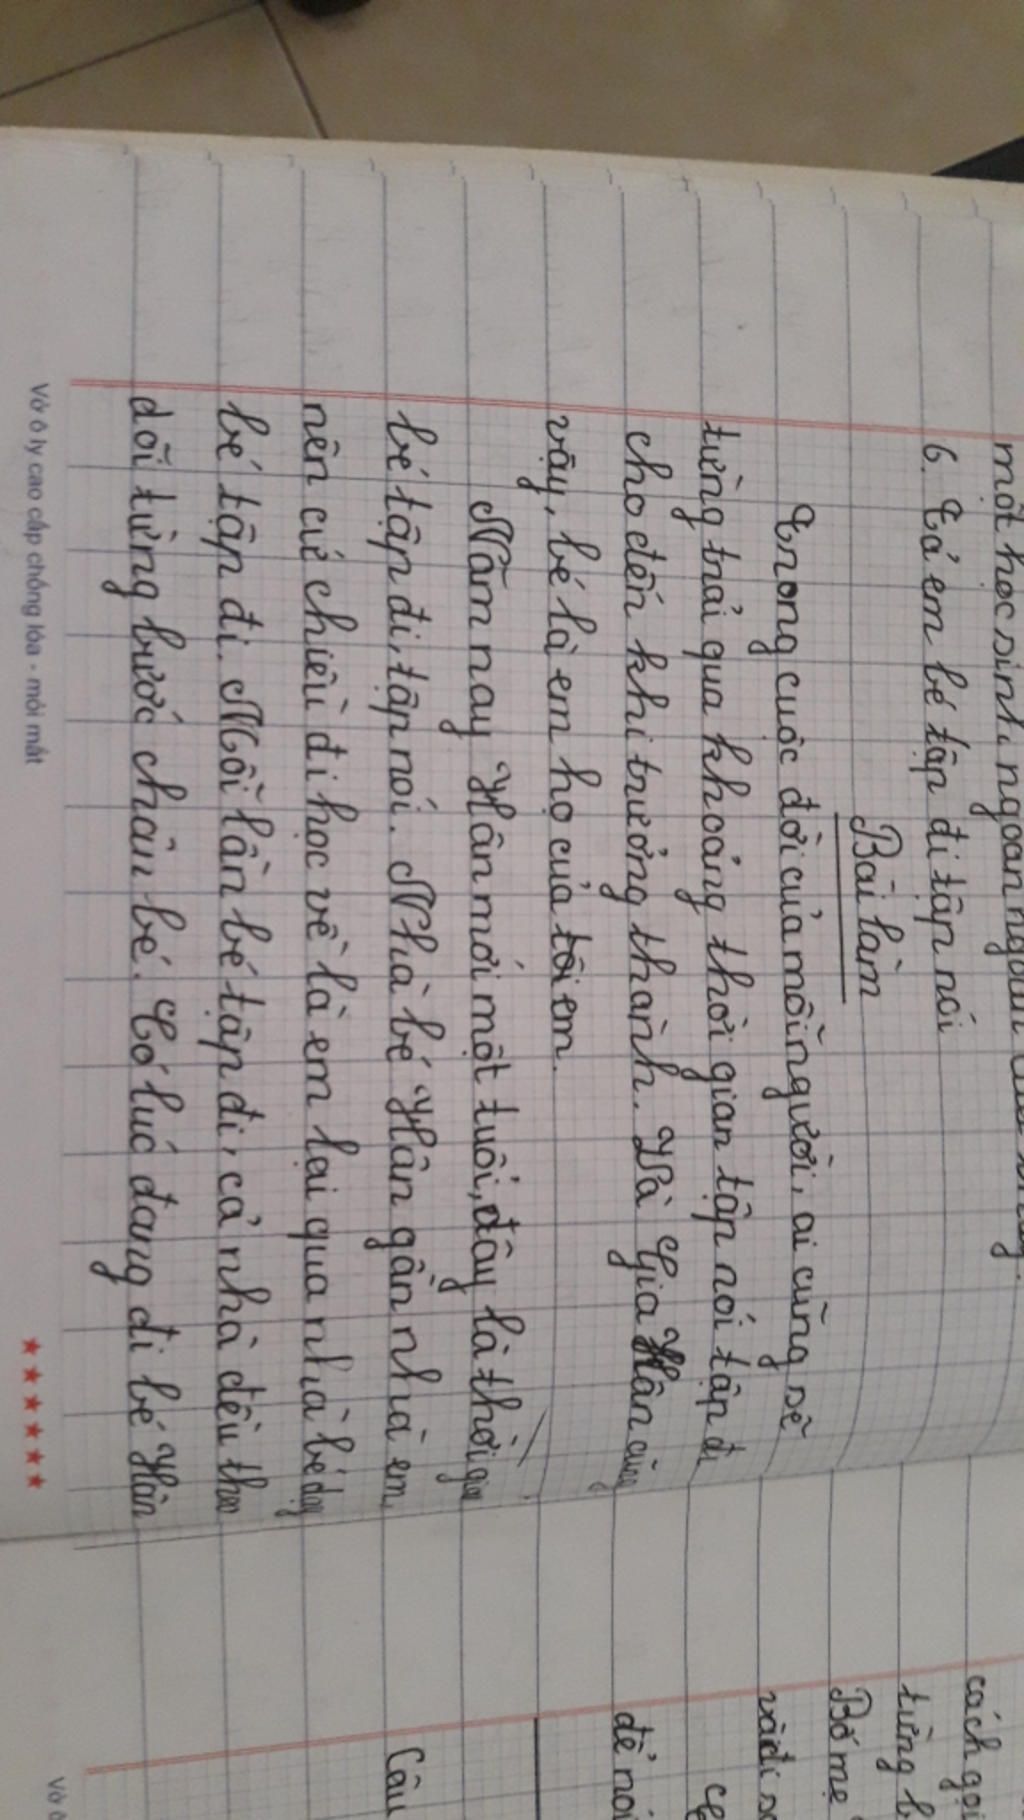 một học sinh ngoan ngoãn
6. Tả em bé tập đi tập nói
Bài làm
Trong cuộc đời của mỗi người, ai cũng sẽ
từng trải qua khoảng thời gian tập nói tập đi
cho đến khi trưởng thành. Và Gia Hân cũng
vậy, bé là em họ của tôi em.
Năm nay Hân mới một tuổi, đây là thời gian
bé tập đi, tập nói. Nhà bé Hân gần nhà em,
nên cứ chiều đi học về là em lại qua nhà bé dạy
bé tập đi. Mỗi lần bé tập đi, cả nhà đều theo
dõi từng bước chân bé. Có lúc đang đi bé Hân
Vở ô ly cao cấp chống lóa - mỏi mắt
cách gọi
từng
Bố mẹ
và đi
để nói
Câu
Vở ô